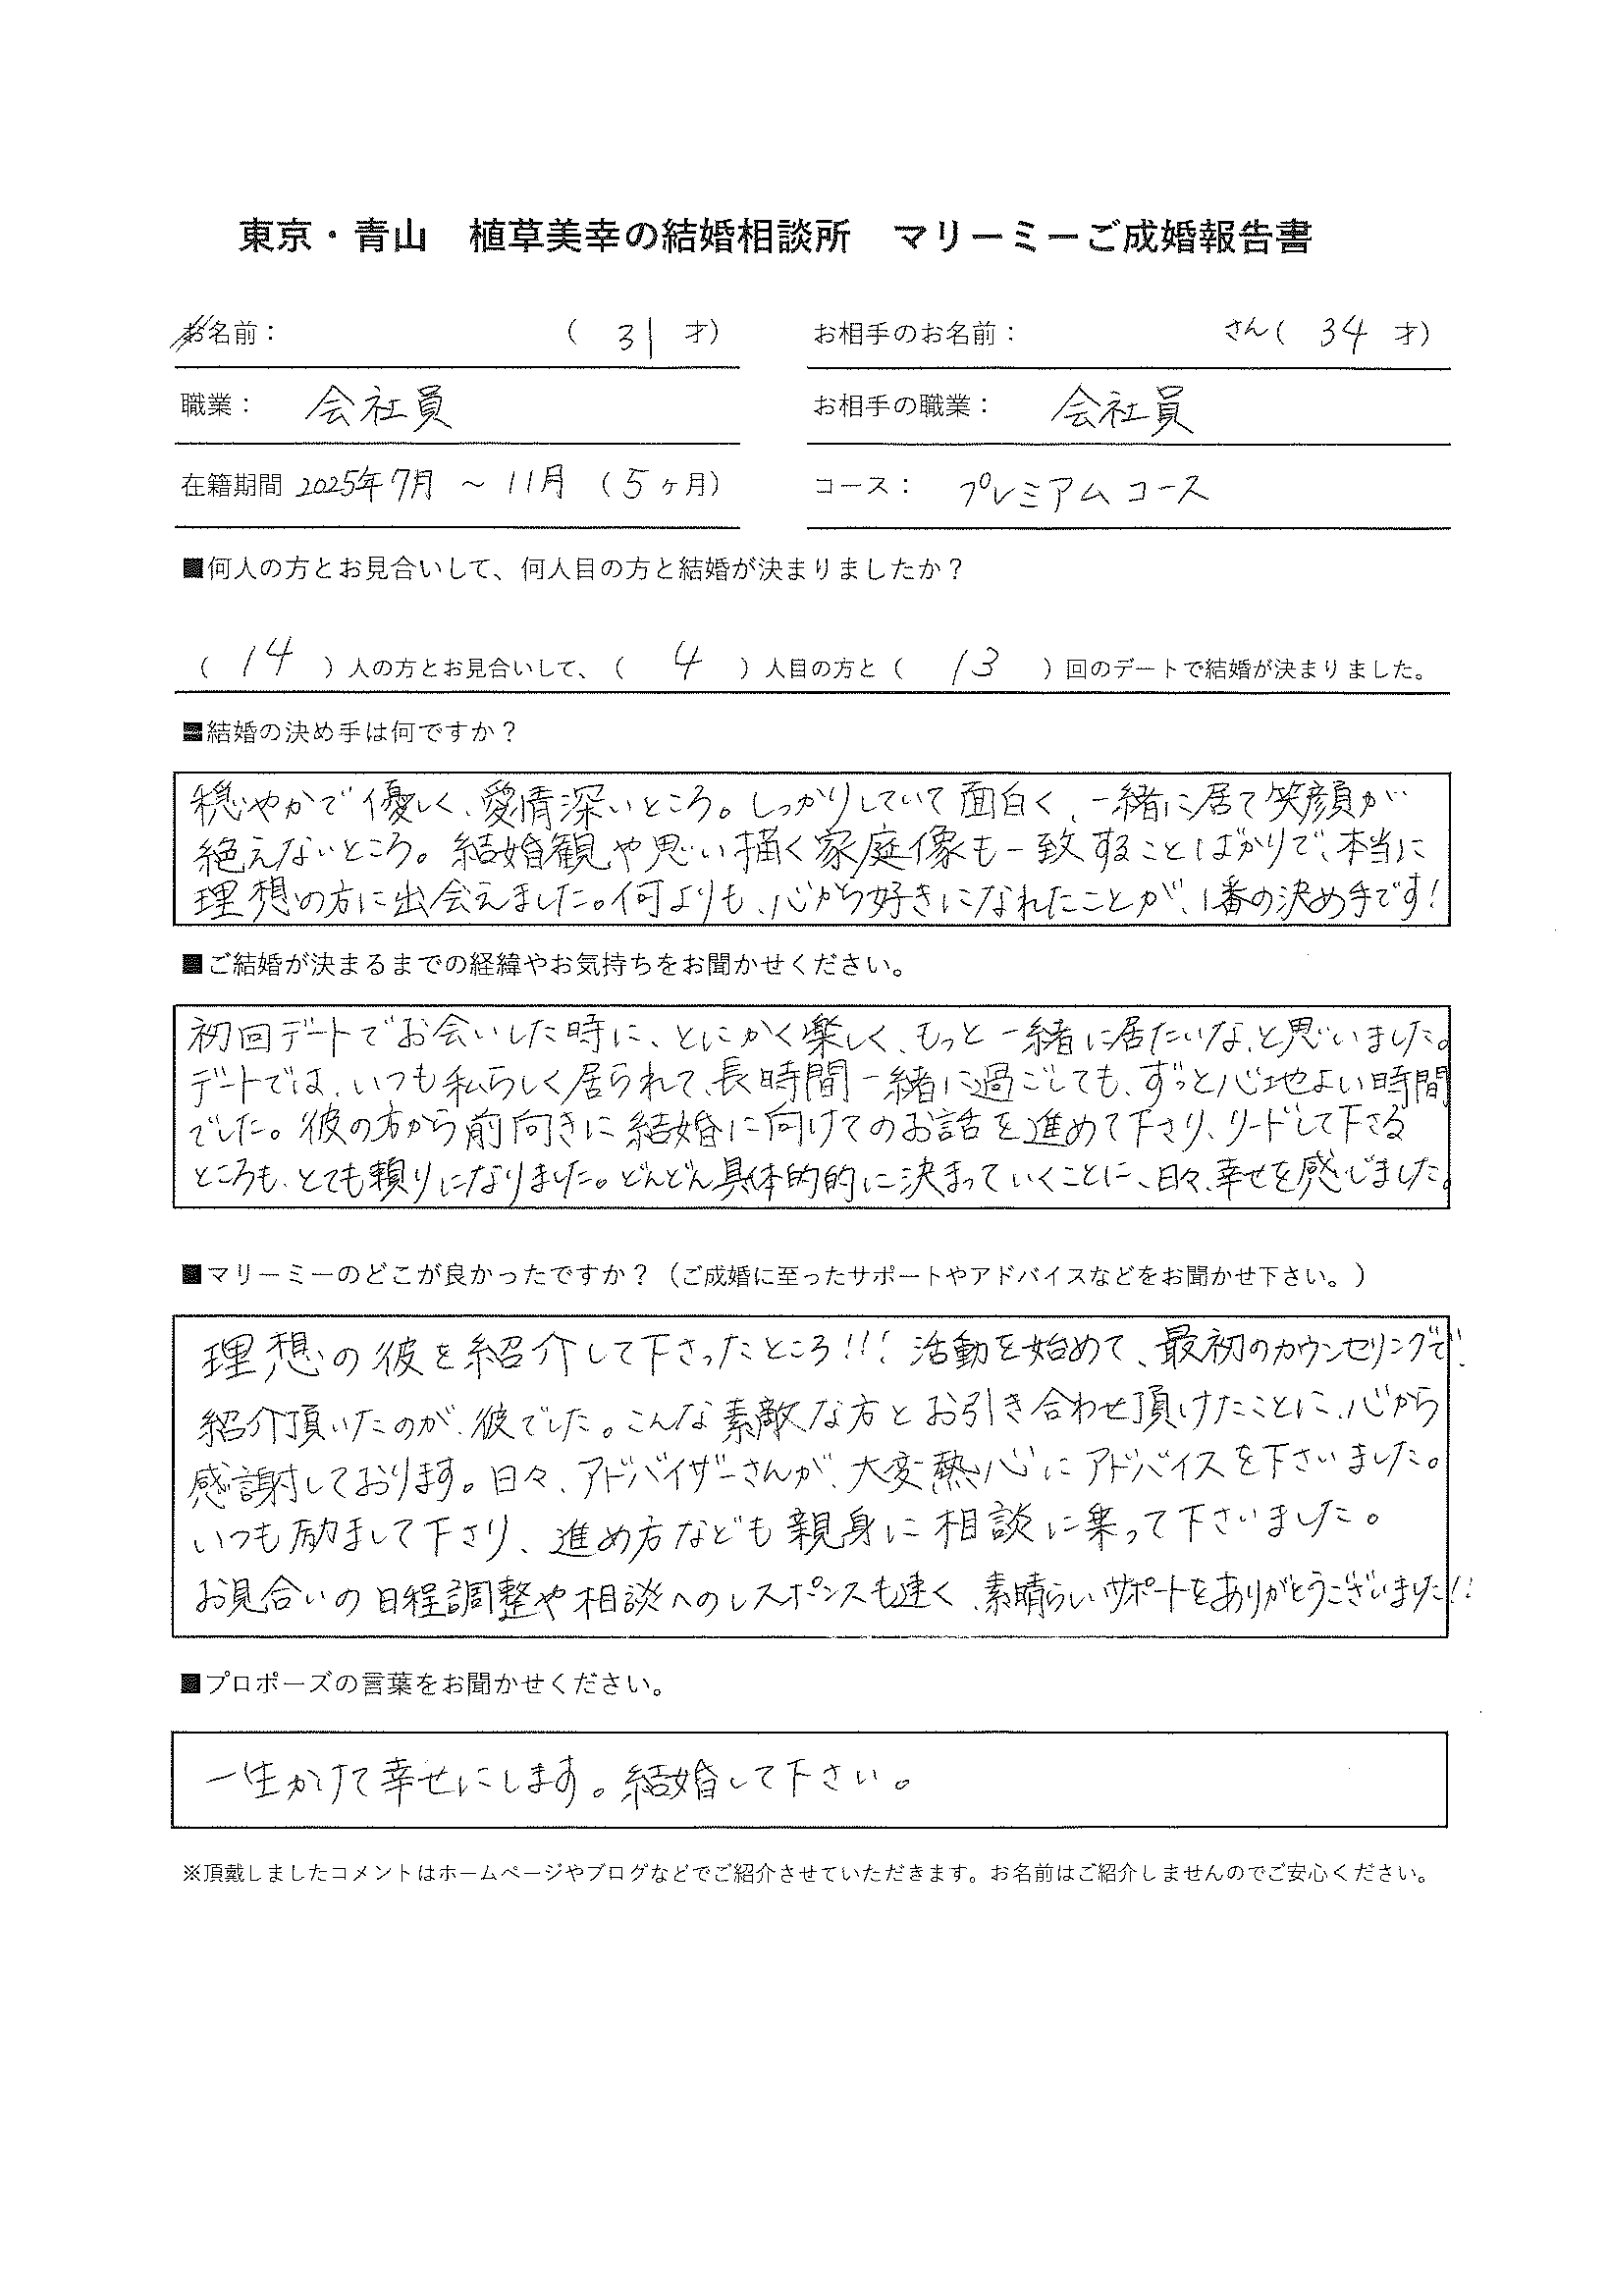 東京・青山　植草美幸の結婚相談所　マリーミーご成婚報告書
お名前：　（ 31 才）　お相手のお名前：　さん（ 34 才）
職業：　会社員　お相手の職業：　会社員
在籍期間 2025年7月 ～ 11月 （5ヶ月）　コース：　プレミアムコース
■何人の方とお見合いして、何人目の方と結婚が決まりましたか？
（ 14 ）人の方とお見合いして、（ 4 ）人目の方と（ 13 ）回のデートで結婚が決まりました。
■結婚の決め手は何ですか？
穏やかで優しく、愛情深いところ。しっかりしていて面白く、一緒に居て笑顔が
絶えないところ。結婚観や思い描く家庭像も一致することばかりで、本当に
理想の方に出会えました。何よりも、心から好きになれたことが、1番の決め手です！
■ご結婚が決まるまでの経緯やお気持ちをお聞かせください。
初回デートでお会いした時に、とにかく楽しく、もっと一緒に居たいな、と思いました。
デートでは、いつも私らしく居られて、長時間一緒に過ごしても、ずっと心地よい時間
でした。彼の方から前向きに結婚に向けてのお話を進めて下さり、リードして下さる
ところも、とても頼りになりました。どんどん具体的的に決まっていくことに、日々、幸せを感じました。
■マリーミーのどこが良かったですか？（ご成婚に至ったサポートやアドバイスなどをお聞かせ下さい。）
理想の彼を紹介して下さったところ!!! 活動を始めて、最初のカウンセリングで、
紹介頂いたのが、彼でした。こんな素敵な方とお引き合わせ頂けたことに、心から
感謝しております。日々、アドバイザーさんが、大変熱心にアドバイスを下さいました。
いつも励まして下さり、進め方なども親身に相談に乗って下さいました。
お見合いの日程調整や相談へのレスポンスも速く、素晴らしいサポートをありがとうございました!!
■プロポーズの言葉をお聞かせください。
一生かけて幸せにします。結婚して下さい。
※頂戴しましたコメントはホームページやブログなどでご紹介させていただきます。お名前はご紹介しませんのでご安心ください。